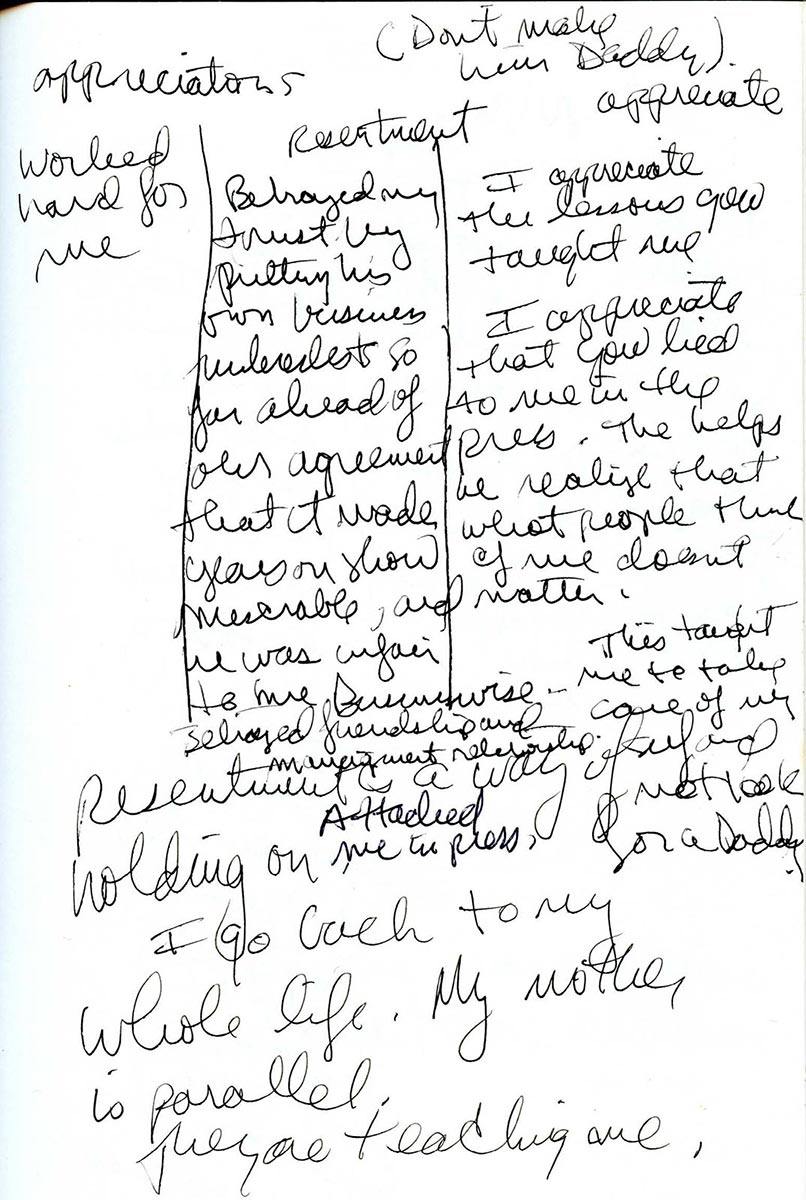 (Don't make
him Daddy).
appreciations
appreciate
Resentment
worked
hard for
me
Betrayed my
trust by
putting his
own business
interests so
far ahead of
our agreement
that it made
years on show
miserable, and
he was unfair
to me Businesswise -
Betrayed friendship and
management relationship.
Attacked
me in press,
I appreciate
the lessons you
taught me
I appreciate
that you lied
to me in the
press. The helps
me realize that
what people think
of me doesn't
matter.
This taught
me to take
care of my
self and
not look
for a Daddy
Resentment is a way of
holding on
I go back to my
whole life. My mother
is parallel.
They are teaching me,